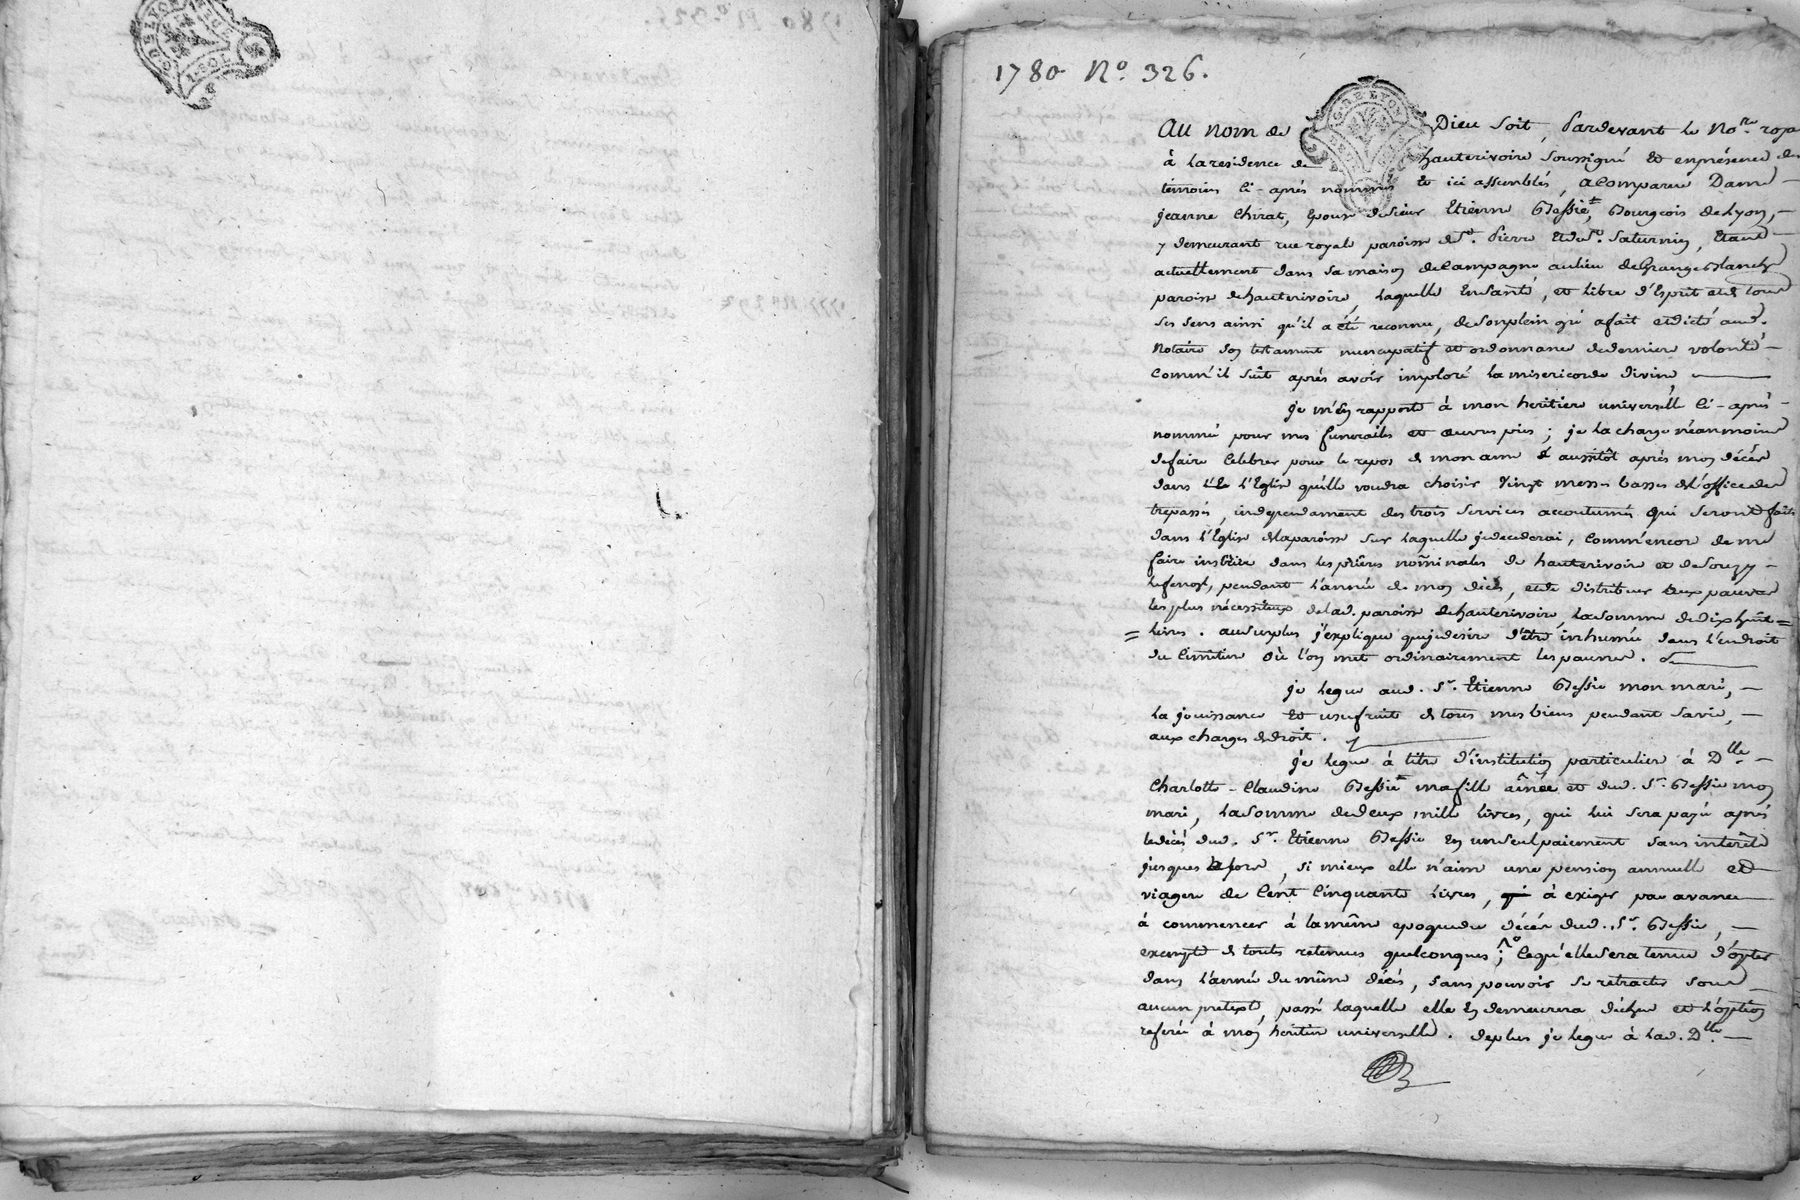 1780 No. 326.
Au nom de Dieu soit, Pardevant le Nore. roya
à la residence de hauterivoire soussigné et en présence des
témoins ci-après nommés et ici assemblés, a Comparu Dame
jeanne Chirat, Epouse de sieur Etienne Bessie, Bourgeois de Lyon,
y demeurant rue royale paroisse de St. Pierre et de St. Saturnin, Etant
actuellement dans sa maison de Campagne au lieu de Grange blanche
paroisse de hauterivoire, laquelle En Santé, et libre d'Esprit et de tous
ses sens ainsi qu'il a été reconnu, de son plein gré a fait et dicté aud.
Notaire son testament nuncupatif et ordonnance de derniere volonté
Comm'il suit après avoir imploré la misericorde divine,
je m'en rapporte à mon heritiere universelle ci-après
nommée pour mes funerailes et œuvres pies; je la charge néanmoins
de faire Celebrer pour le repos de mon ame et aussitôt après mon décès
dans l'Eglise qu'elle voudra choisir vingt messes basses de l'office des
trepassés, independament des trois services accoutumés qui seront faits
dans l'Eglise de la paroisse sur laquelle je decederai, Comm'encore de me
faire inscrire dans les prières nominales de hauterivoire et de Souzy
pendant l'année de mon décès, et de distribuer aux pauvres
les plus nécessiteux de lad. paroisse de hauterivoire, la somme de dix huit
livres. au surplus j'explique que je desire d'être inhumée dans l'endroit
du Cimitiere où l'on met ordinairement les pauvres.
je legue aud. Sr. Etienne Bessie mon mari,
la jouissance et usufruit de tous mes biens pendant sa vie,
aux charges de droit.
je legue à titre d'institution particuliere à Dlle.
Charlotte-Claudine Bessie ma fille aînée et dud. Sr. Bessie mon
mari, la somme de deux mille livres, qui lui sera payée après
le décès dud. Sr. Etienne Bessie en un seul paiement sans interêts
jusques lors, si mieux elle n'aime une pension annuelle et
viagere de Cent Cinquante livres, à exiger par avance
à commencer à la même epoque du décès dud. Sr. Bessie,
exempte de toutes retenues quelconques; Ce qu'elle sera tenue d'opter
dans l'année du même décès, sans pouvoir se retracter sous
aucun pretexte, passé laquelle elle en demeurera déchue et l'option
referée à mon heritiere universelle. de plus je legue à lad. Dlle.